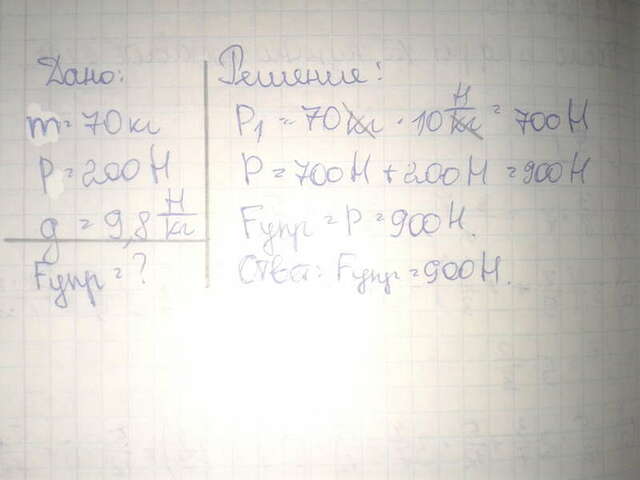 Дано:
m = 70 кг
P = 200 Н
g = 9,8 Н/кг
Fупр = ?
Решение:
P₁ = 70 кг · 10 Н/кг = 700 Н
P = 700 Н + 200 Н = 900 Н
Fупр = P = 900 Н.
Ответ: Fупр = 900 Н.